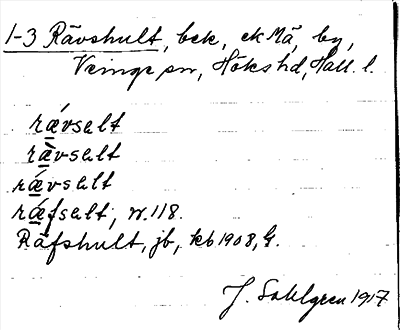 1-3 Rävshult, bek, ek Mä, by,
Veinge sn, Höks hd, Hall. l.
rǽvsɑlt
ræ̀vsɑlt
rǽvsɑlt
rǽfsɑlt, v. 118.
Räfshult, jb, kb 1908, G.
J. Sahlgren 1917